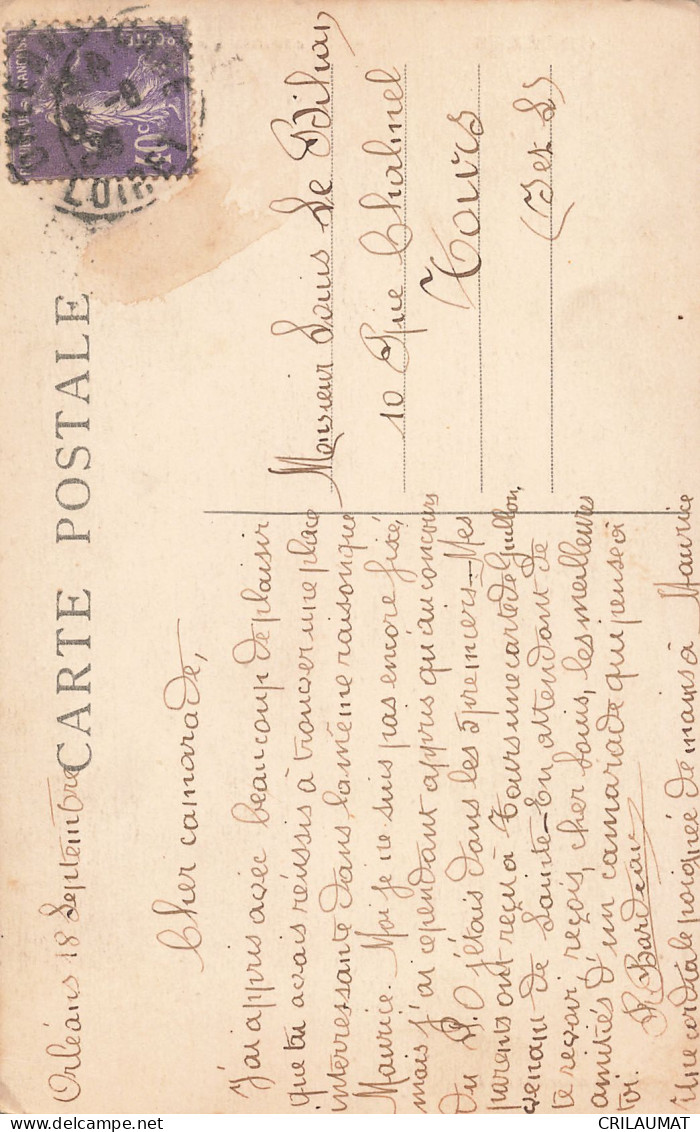 CARTE POSTALE
Orléans 18 Septembre
Cher camarade,
J'ai appris avec beaucoup de plaisir
que tu avais réussis à trouver une place
interressante dans la même raison que
Maurice. Moi je ne suis pas encore fixé,
mais j'ai cependant appris qu'au concours
du P.O j'étais dans les 5 premiers. Mes
parents ont reçu à Tours une carte de Guillon,
venant de Sainte. En attendant de
te revoir reçois, cher Louis, les meilleures
amitiés d'un camarade qui pense à
toi.
R Bardeau
Une cordiale poignée de mains à Maurice
Monsieur Louis Le Bihan
10 Rue Chalmel
Tours
(I et L)
40c
LOIRET
CRILAUMAT